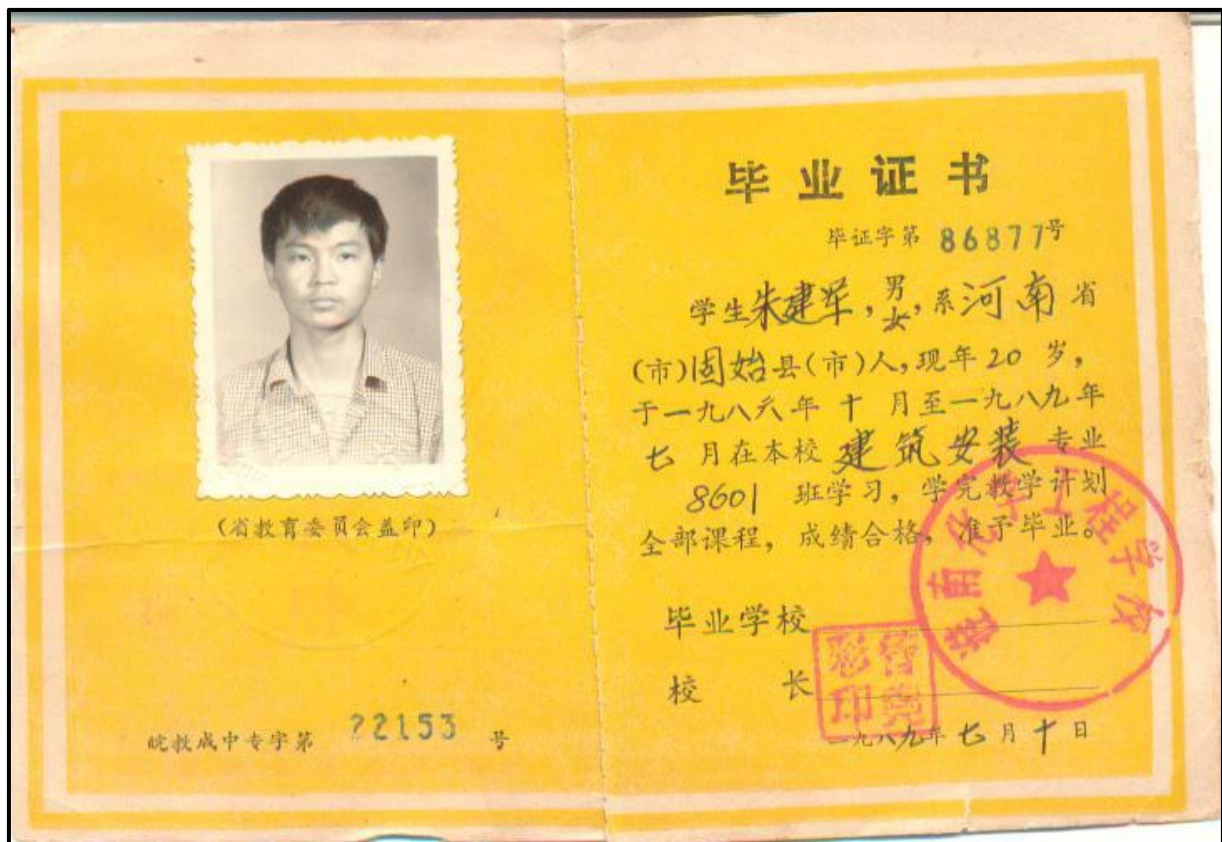 (省教育委员会盖印)
皖教成中专字第 22153 号
毕业证书
毕证字第 86877号
学生朱建军,男女,系河南省
(市)固始县(市)人,现年20岁,
于一九八六年十月至一九八九年
七月在本校建筑安装专业
8601班学习,学完教学计划
全部课程,成绩合格,准予毕业。
毕业学校
校长
一九八九年七月十日
淮南化学工程学校